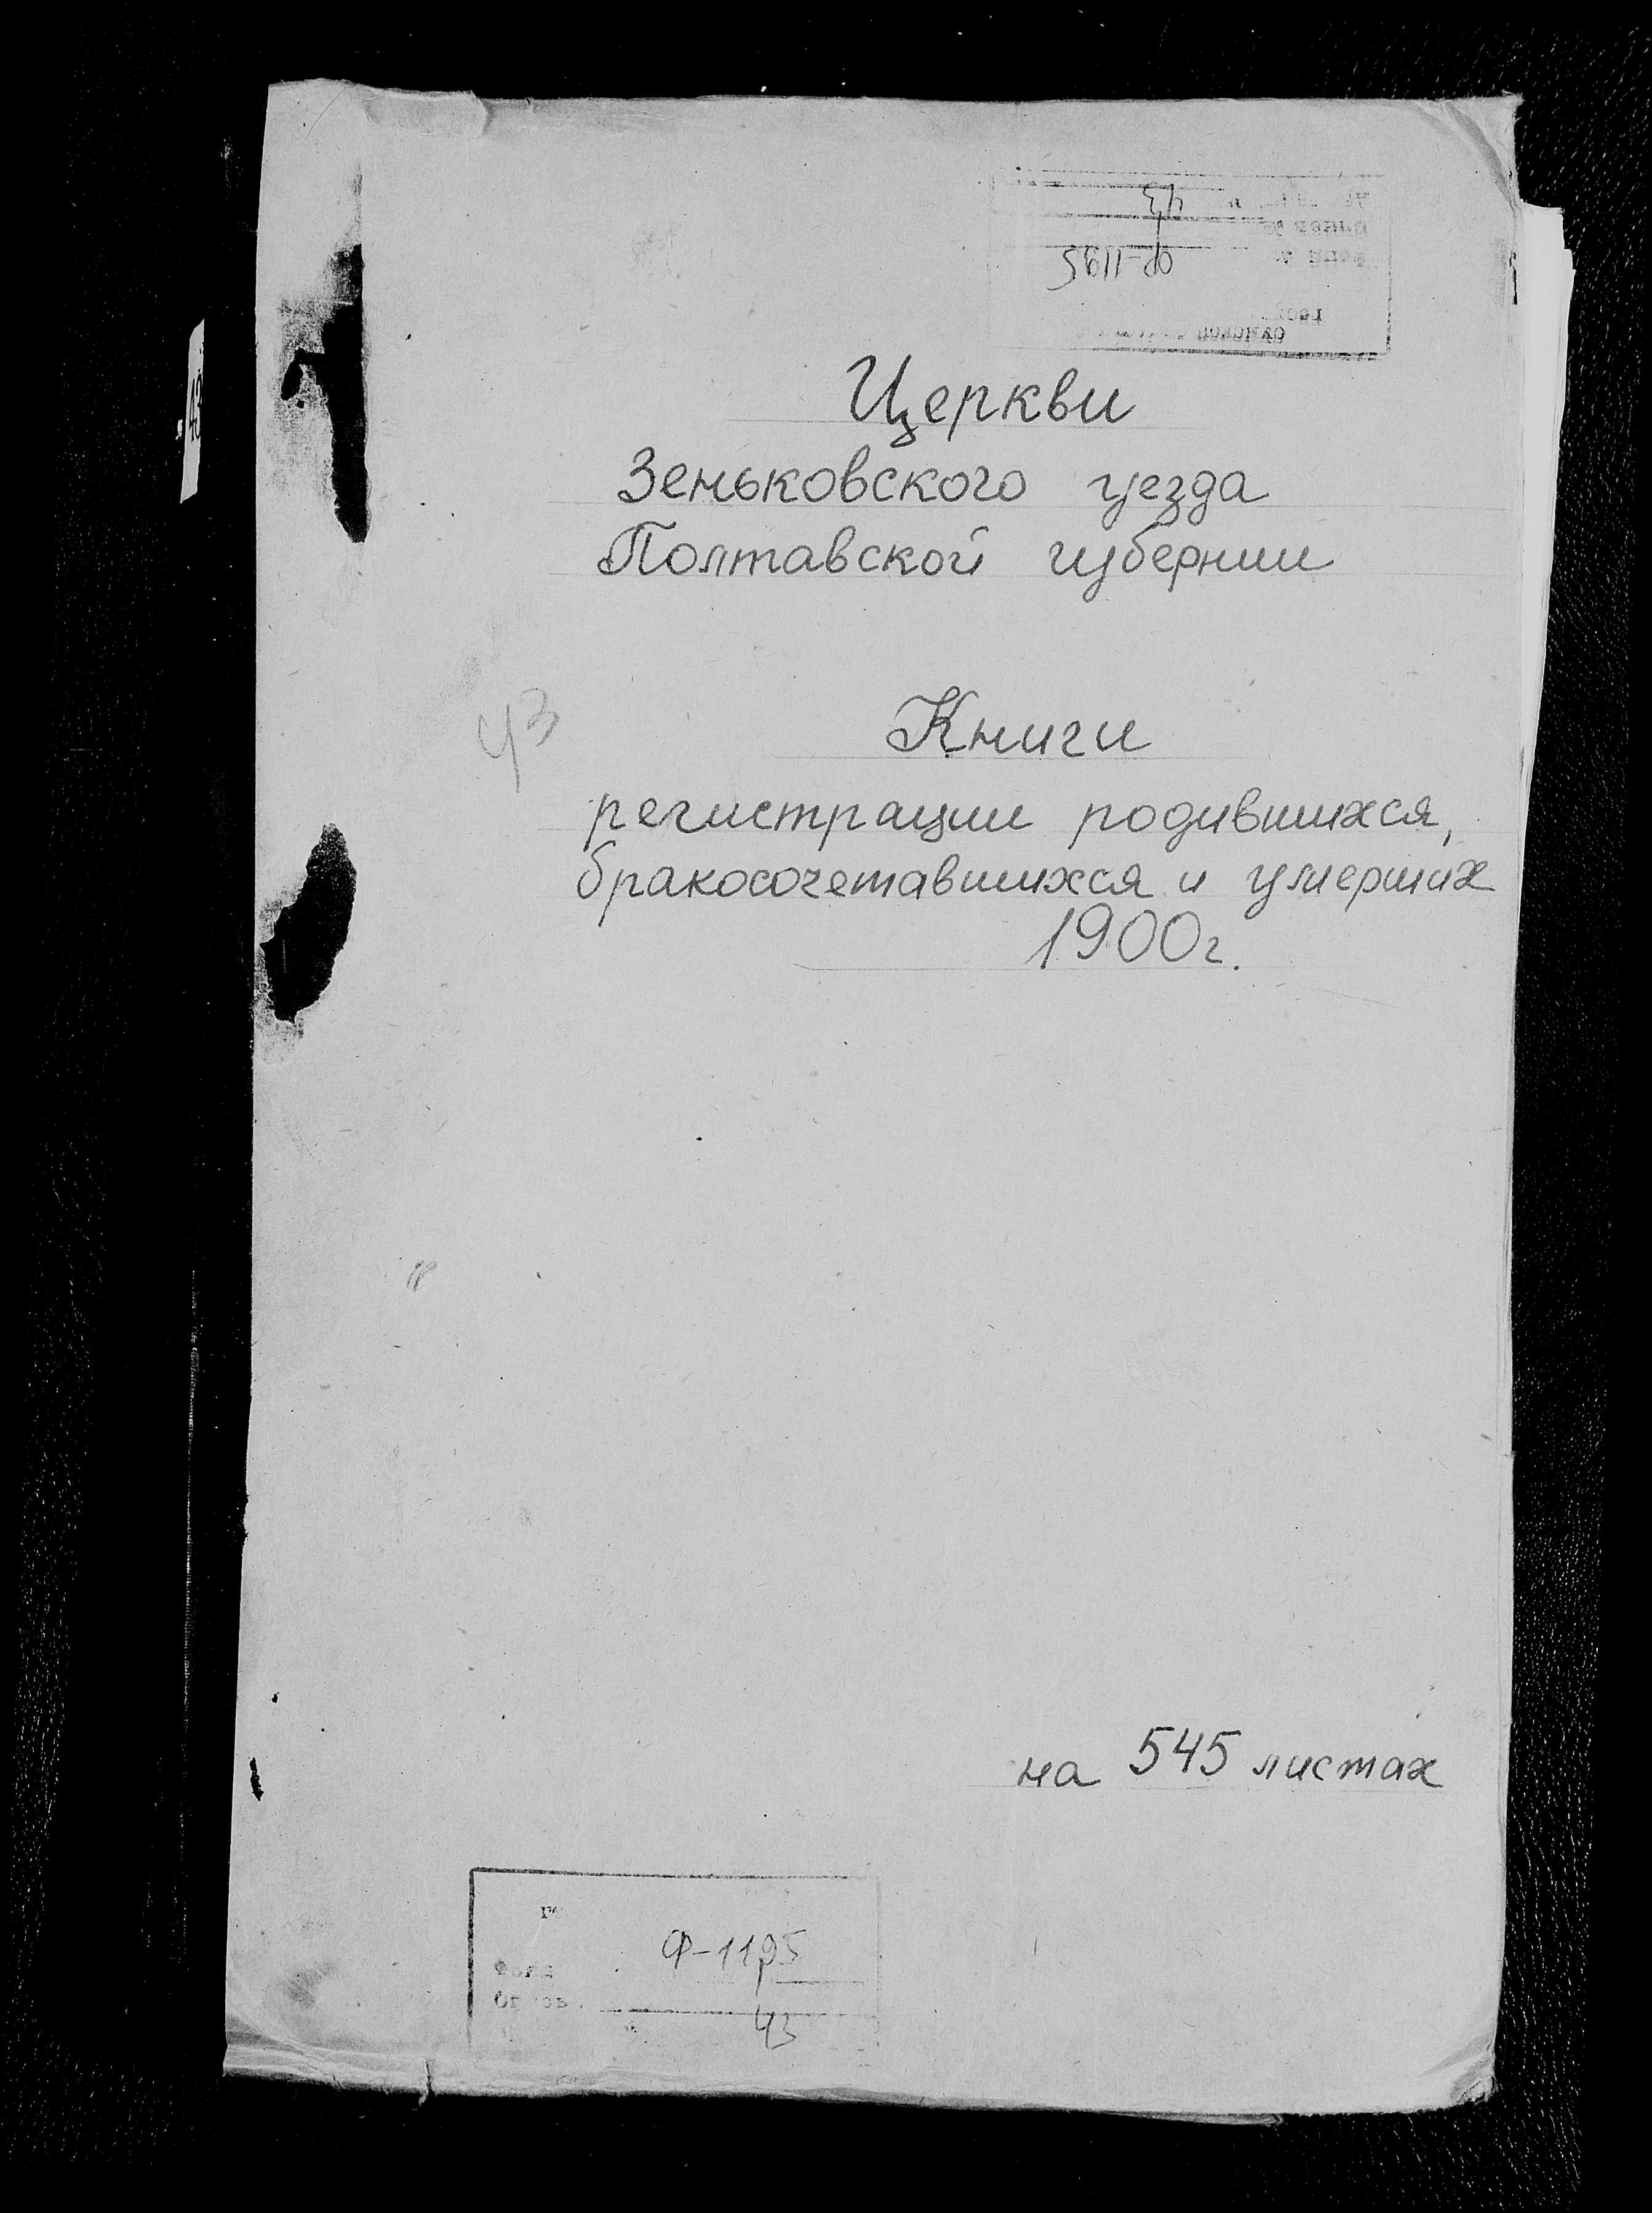 43
Ф-1195
Церкви
Зеньковского уезда
Полтавской губернии
43
Книги
регистрации родившихся,
бракосочетавшихся и умерших
1900г.
на 545 листах
Ф-1195
43